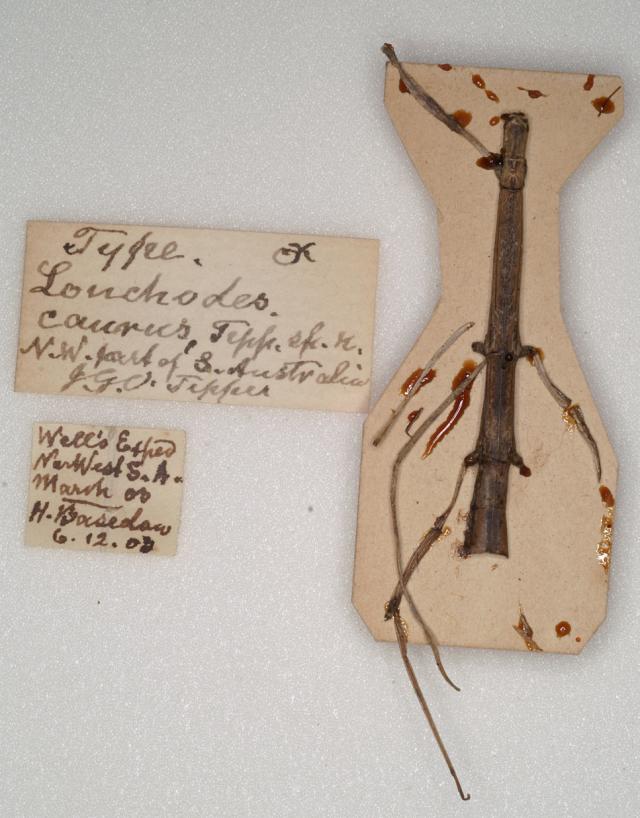 Type.
Lonchodes.
caurus, Tepp. sp. n.
N.W. part of S. Australia
J.G.O. Tepper
Well's Exped
Nor West S. A.
March 03
H. Basedow
6. 12. 03